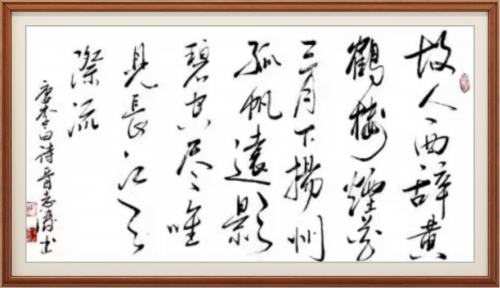 故人西辞黄
鶴樓煙花
三月下揚州
孤帆遠影
碧空尽唯
見長江天
際流
唐李白詩